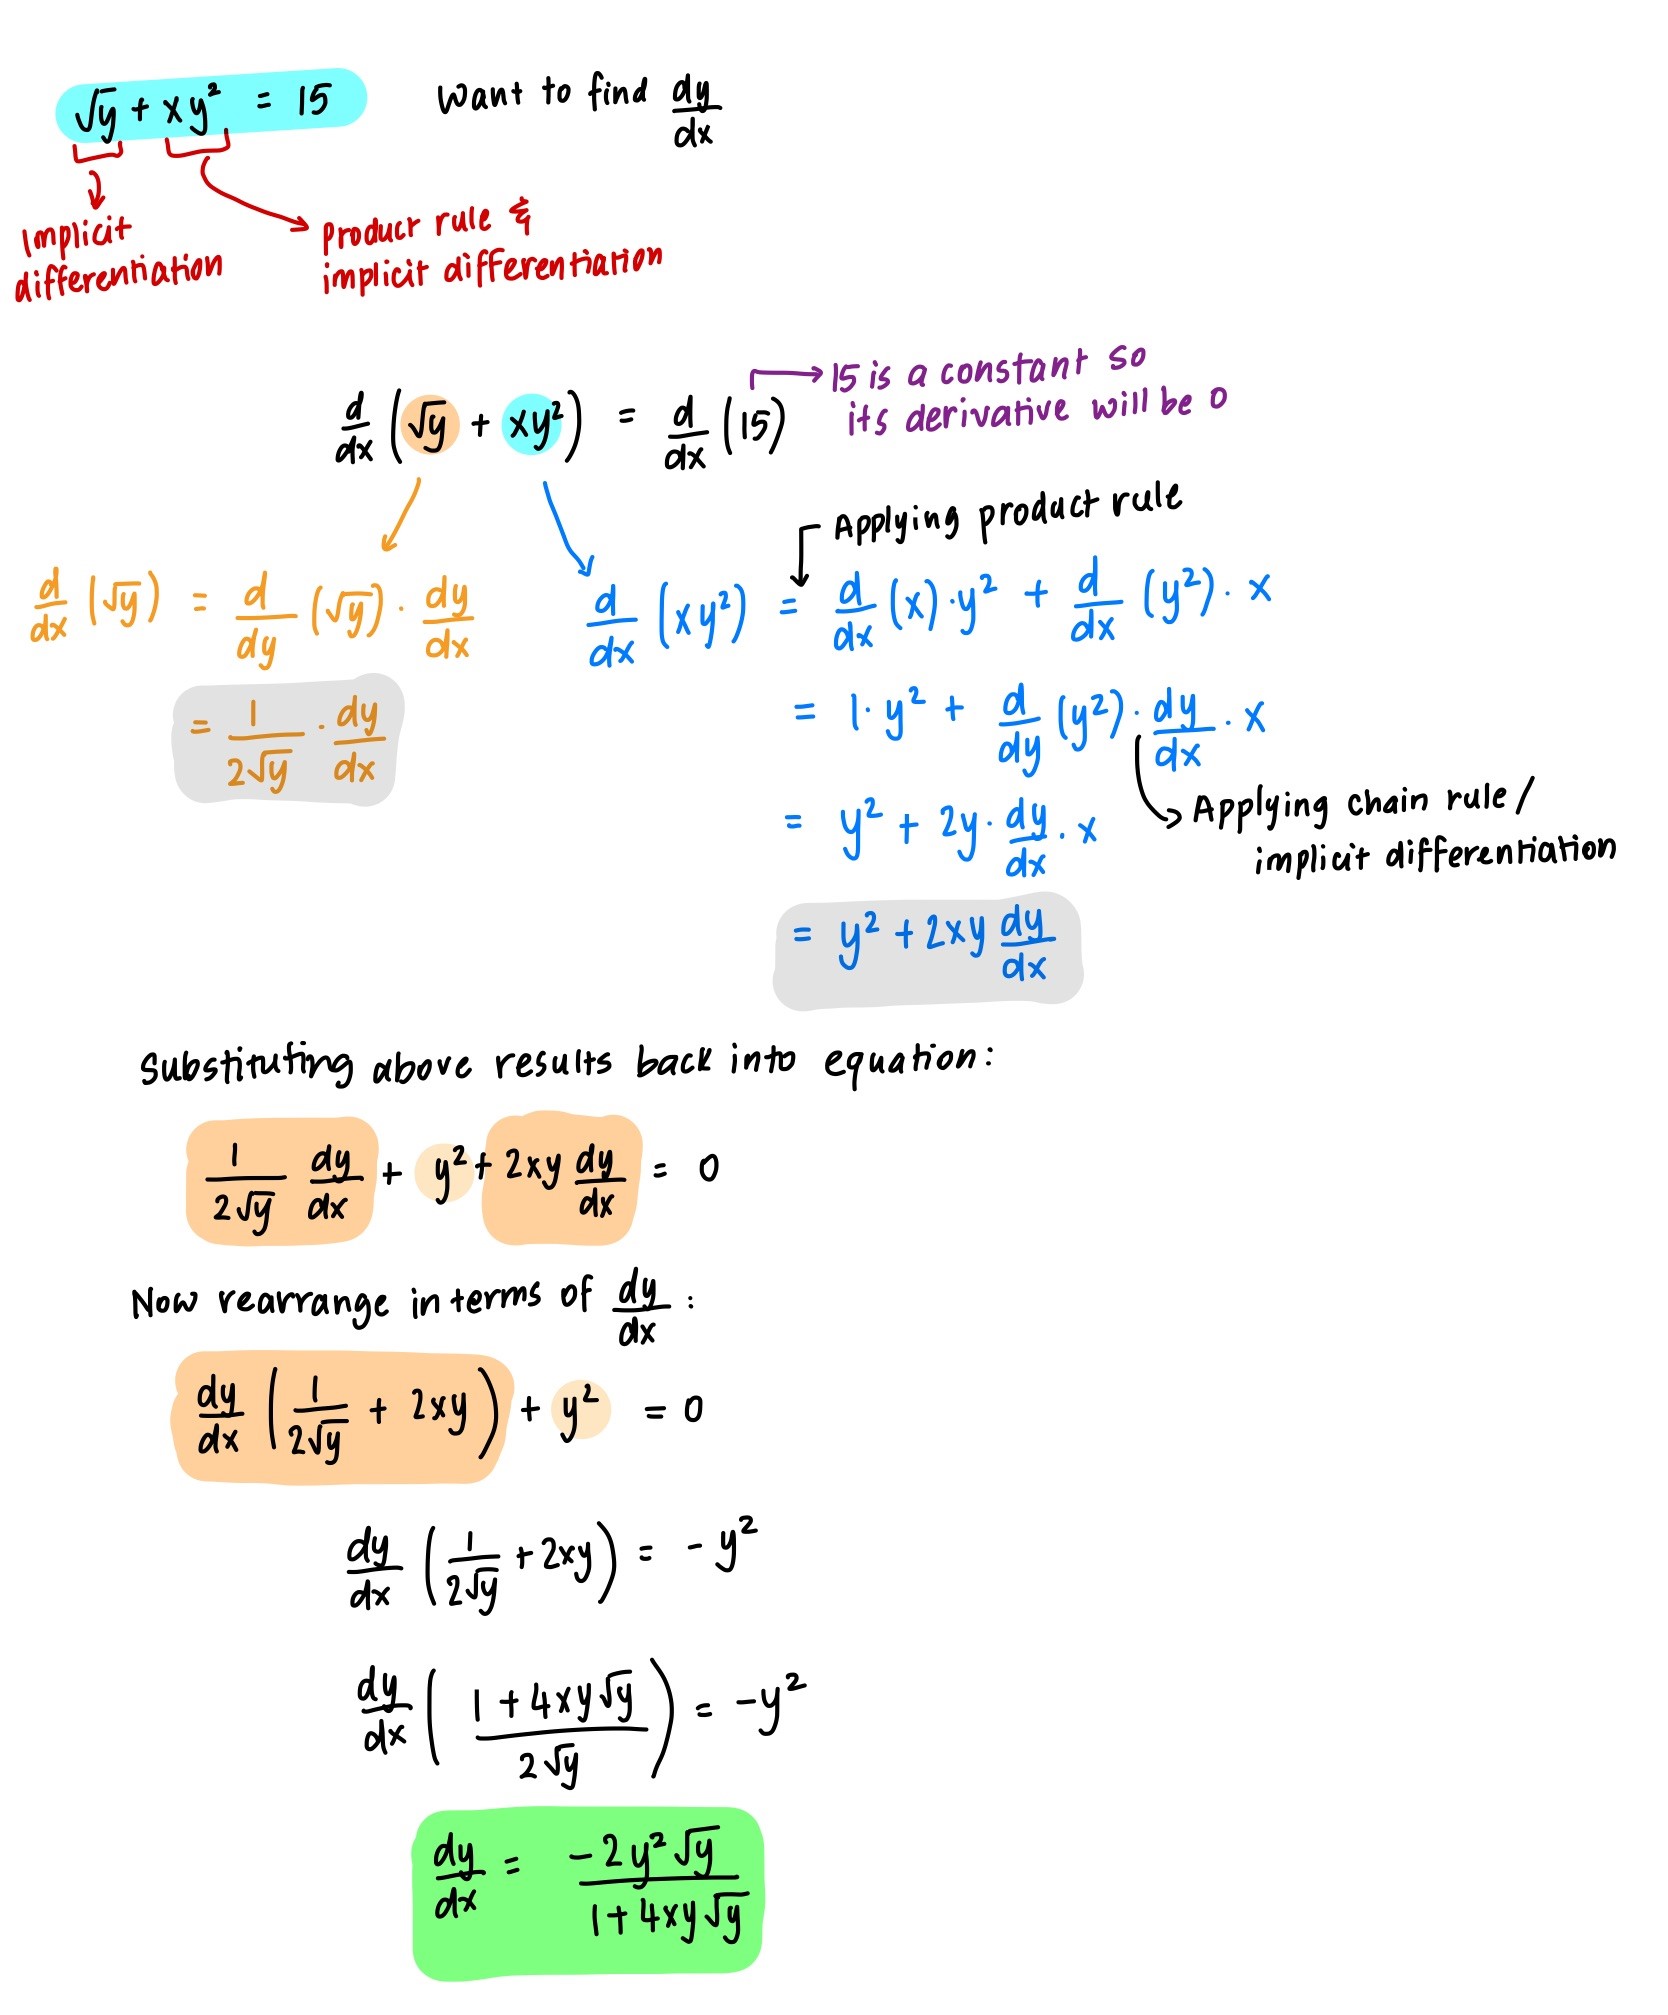 √y + xy² = 15
Want to find dy/dx
Implicit
differentiation
product rule &
implicit differentiation
d/dx (√y + xy²) = d/dx (15)
15 is a constant so
its derivative will be 0
Applying product rule
d/dx (√y) = d/dy (√y) · dy/dx
= 1/(2√y) · dy/dx
d/dx (xy²) = d/dx (x) · y² + d/dx (y²) · x
= 1 · y² + d/dy (y²) · dy/dx · x
Applying chain rule/
implicit differentiation
= y² + 2y · dy/dx · x
= y² + 2xy dy/dx
Substituting above results back into equation:
1/(2√y) dy/dx + y² + 2xy dy/dx = 0
Now rearrange in terms of dy/dx :
dy/dx (1/(2√y) + 2xy) + y² = 0
dy/dx (1/(2√y) + 2xy) = - y²
dy/dx ((1 + 4xy√y)/(2√y)) = -y²
dy/dx = (-2y²√y)/(1 + 4xy√y)